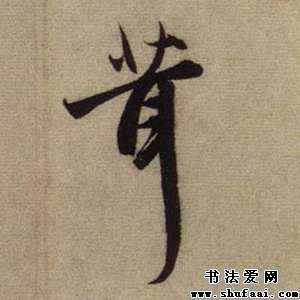 茸
书法爱网
www.shufaai.com